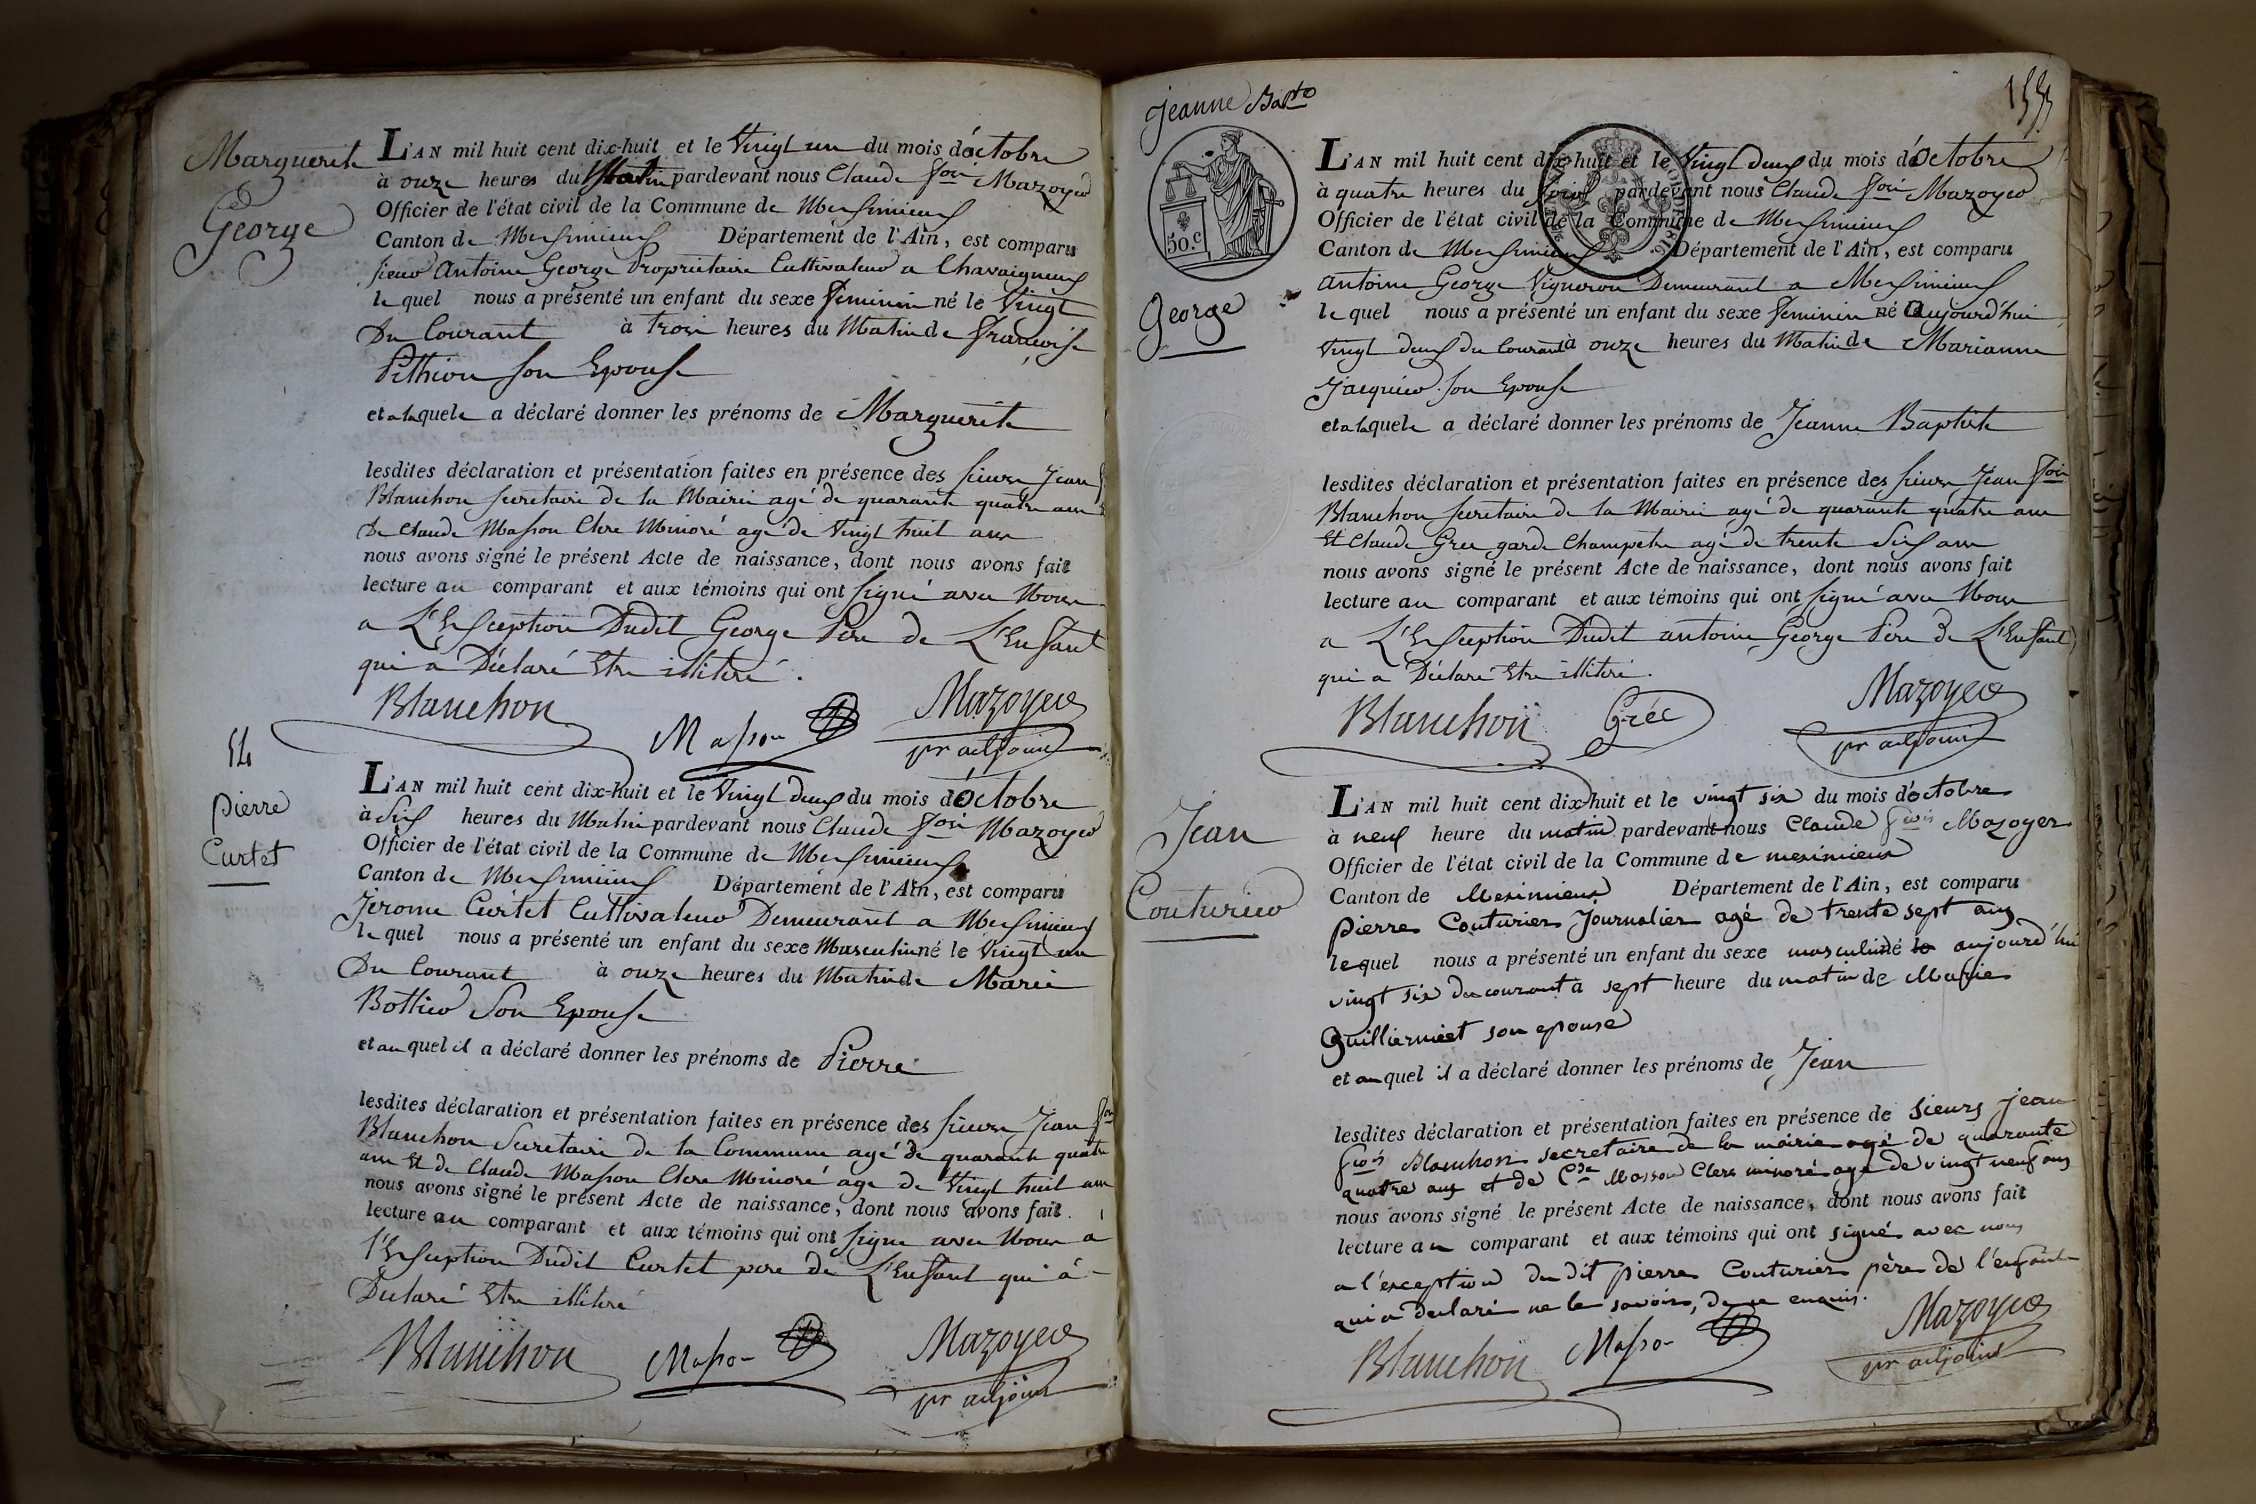 Marguerite
George
L'AN mil huit cent dix-huit et le Vingt un du mois d'octobre
à onze heures du Matin pardevant nous Claude fois Mazoyer
Officier de l'état civil de la Commune de Meximieux
Canton de Meximieux Département de l'Ain, est comparu
sieur Antoine George Propriétaire Cultivateur a Chavaigneux
lequel nous a présenté un enfant du sexe feminin né le Vingt
Du Courant à trois heures du Matin de françoise
Pithion son Epouse
et a laquele a déclaré donner les prénoms de Marguerite
lesdites déclaration et présentation faites en présence des sieurs Jean
Blanchon secretaire de la Mairie agé de quarante quatre ans
De Claude Masson Clerc Minoré agé de Vingt huit ans
nous avons signé le présent Acte de naissance, dont nous avons fait
lecture au comparant et aux témoins qui ont signé avec Nous
a L'Exception Dudit George Pere de L'Enfant
qui a Déclaré Etre illiteré.
Blanchon Masson Mazoyer
pr adjoint
54
Pierre
Curtet
L'AN mil huit cent dix-huit et le Vingt deux du mois d'Octobre
à Six heures du Matin pardevant nous Claude fois Mazoyer
Officier de l'état civil de la Commune de Meximieux
Canton de Meximieux Département de l'Ain, est comparu
Jerome Curtet Cultivateur Demeurant a Meximieux
lequel nous a présenté un enfant du sexe Masculin né le Vingt un
Du Courant à onze heures du Matin de Marie
Bottier Son Epouse
et au quel il a déclaré donner les prénoms de Pierre
lesdites déclaration et présentation faites en présence des sieurs Jean fois
Blanchon Secretaire de la Commune agé de quarante quatre
ans Et de Claude Masson Clerc Minoré age de Vingt huit ans
nous avons signé le présent Acte de naissance, dont nous avons fait
lecture au comparant et aux témoins qui ont signe avec Nous a
l'Exception Dudit Curtet pere de L'Enfant qui a
Declaré Etre illiteré
Blanchon Masson Mazoyer
pr adjoint
Jeanne Bapte
50.c
George
L'AN mil huit cent dix-huit et le Vingt deux du mois d'Octobre
à quatre heures du soir pardevant nous Claude fois Mazoyer
Officier de l'état civil de la Commune de Meximieux
Canton de Meximieux Département de l'Ain, est comparu
antoine George Vigneron Demeurant a Meximieux
lequel nous a présenté un enfant du sexe feminin né aujourd'hui
Vingt deux du Courant à onze heures du Matin de Marianne
Jacquier son Epouse
et a laquele a déclaré donner les prénoms de Jeanne Baptiste
lesdites déclaration et présentation faites en présence des sieurs Jean fois
Blanchon secretaire de la Mairie agé de quarante quatre ans
Et Claude Grec garde Champetre agé de trente Six ans
nous avons signé le présent Acte de naissance, dont nous avons fait
lecture au comparant et aux témoins qui ont signé avec Nous
a L'Exception Dudit antoine George Pere de L'Enfant
qui a Déclaré Etre illiteré.
Blanchon Gréc Mazoyer
pr adjoint
Jean
Couturier
L'AN mil huit cent dix-huit et le vingt six du mois d'octobre
à neuf heure du matin pardevant nous Claude fcois Mazoyer
Officier de l'état civil de la Commune de meximieux
Canton de Meximieux Département de l'Ain, est comparu
pierre Couturier Journalier agé de trente sept ans
lequel nous a présenté un enfant du sexe masculin né le aujourd'hui
vingt six du courant à sept heure du matin de Marie
Guilliermet son epouse
et au quel il a déclaré donner les prénoms de Jean
lesdites déclaration et présentation faites en présence de sieurs jean
fcois Blanchon secretaire de la mairie agé de quarante
quatre ans et de Cde Masson Clerc minoré agé de vingt neuf ans
nous avons signé le présent Acte de naissance, dont nous avons fait
lecture au comparant et aux témoins qui ont signé avec nous
a l'exception du dit pierre Couturier père de l'enfant
qui a declaré ne le savoir, de ce enquis.
Blanchon Masson Mazoyer
pr adjoint